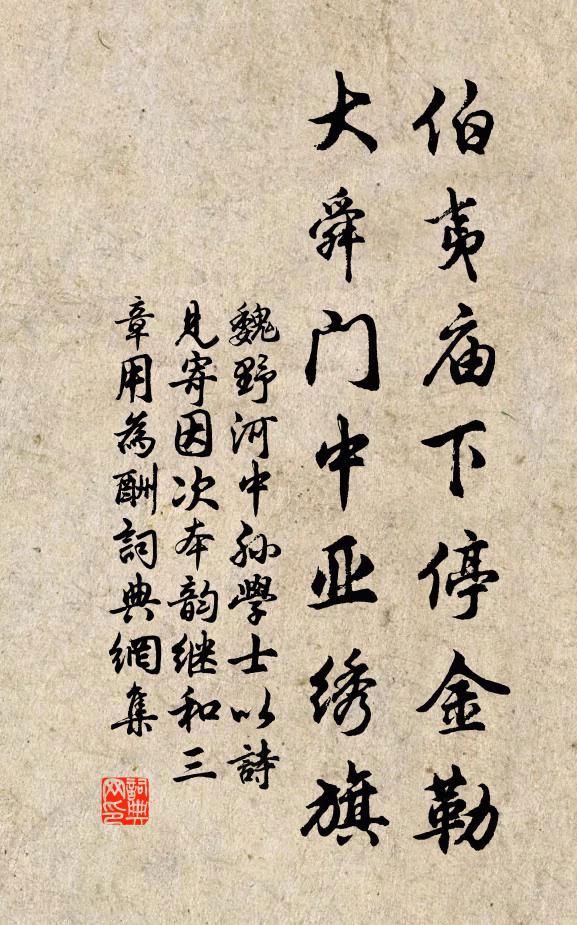 伯夷庙下停金勒
大舜门中亚绣旗
魏野河中孙學士以詩
見寄因次本韵继和三
章用為酬詞典網集
詞典
网印